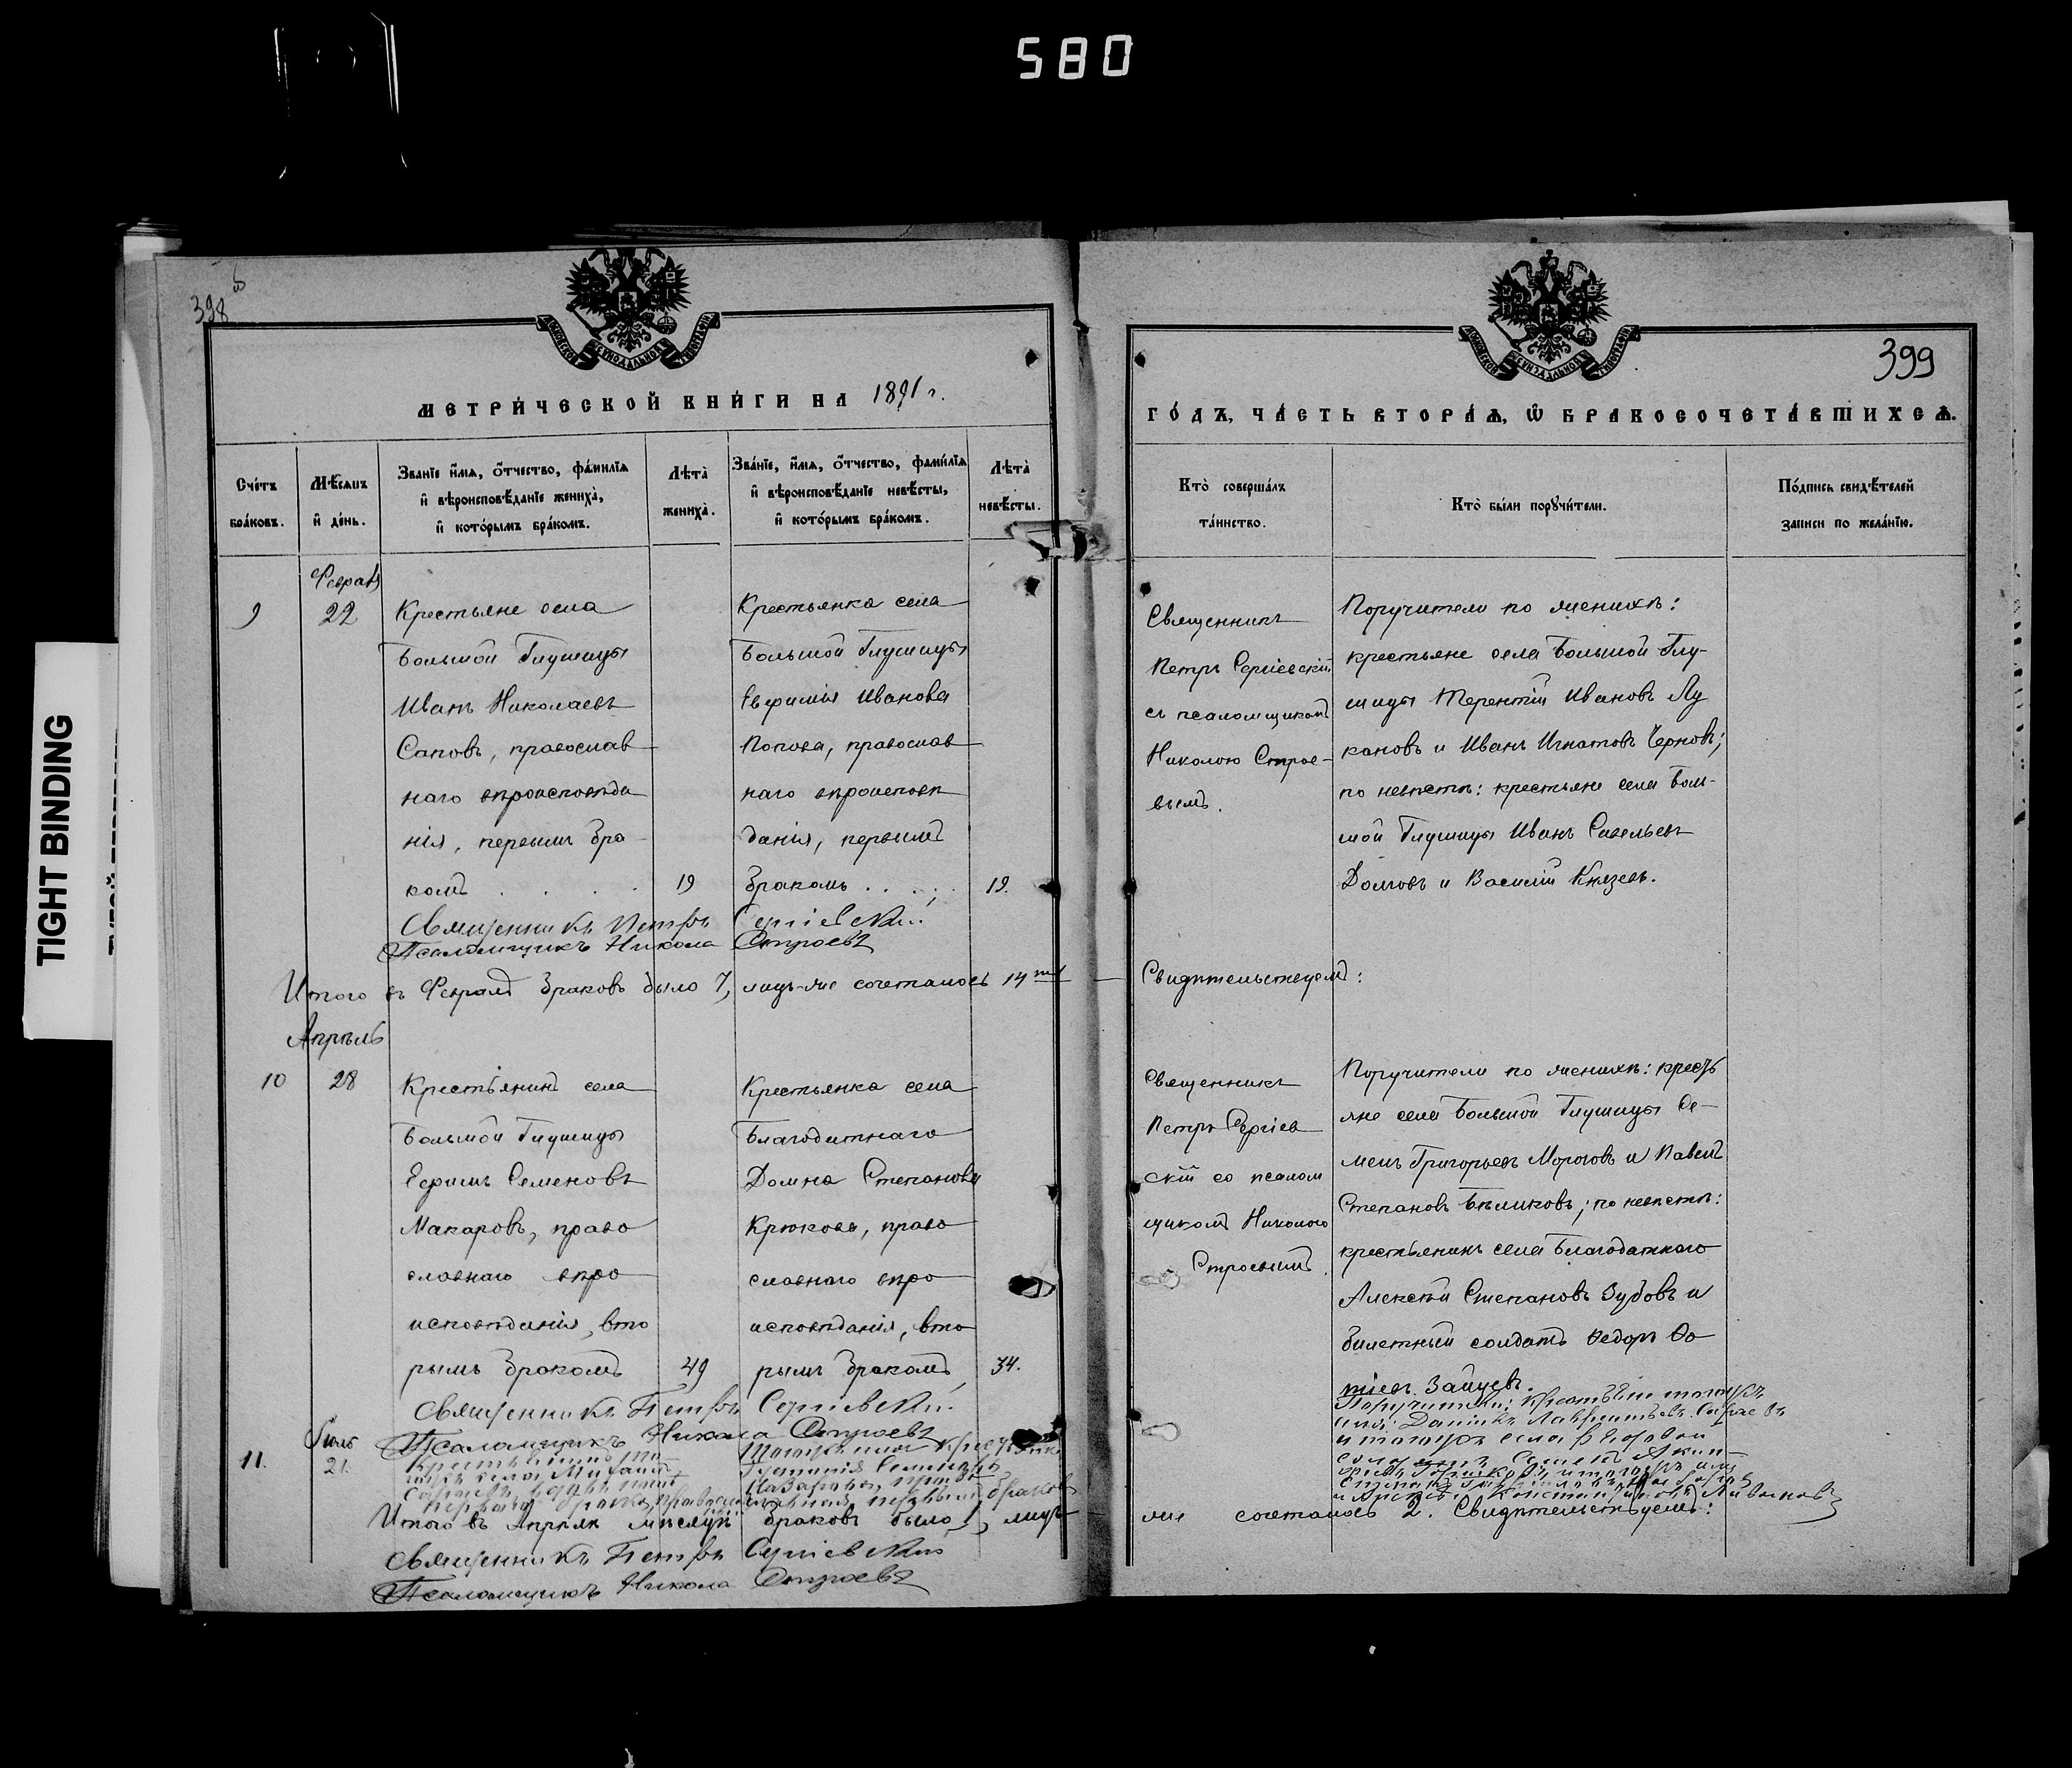 580
TIGHT BINDING
398 об
МЕТРИ́ЧЕСКОЙ КНИ́ГИ НА 1891 г.
Сче́тъ бра́ковъ.
Мѣ́сяцъ и де́нь.
Зва́нїе и́мѧ, ѻ҆́тчество, фамилїѧ и҆ вѣроисповѣ́данїе жениха̀, и҆ кото́рымъ бра́комъ.
Лѣта̀ жениха̀.
Зва́нїе, и҆́мѧ, ѻ҆́тчество, фами́лїѧ и҆ вѣроисповѣ́данїе невѣ́сты, и҆ кото́рымъ бра́комъ.
Лѣта̀ невѣ́сты.
Февраль
9
22
Крестьяне села
Большой Глушицы
Иванъ Николаевъ
Саповъ, православ
наго вѣроисповѣда
нія, первымъ бра-
комъ . . . .
19
Крестьянка села
Большой Глушицы
Евфимія Иванова
Попова, православ
наго вѣроисповѣ
данія, первымъ
бракомъ . . . .
19.
Священникъ Петръ Сергіевскій
Псаломщикъ Никола Строевъ
Итого въ Февралѣ браковъ было 7, лицъ-же сочеталось 14ть
Апрѣль
10
28
Крестьянинъ села
Большой Глушицы
Ефимъ Семеновъ
Макаровъ, право
славнаго вѣро
исповѣданія, вто
рымъ бракомъ
49
Крестьянка села
Благодатнаго
Домна Степанова
Крюкова, право
славнаго вѣро
исповѣданія, вто
рымъ бракомъ
34.
Священникъ Петръ Сергіевскій
Псаломщикъ Никола Строевъ
11.
Іюль
21.
Итого въ Апрѣлѣ мѣсяцѣ браковъ было 1, лицъ
Священникъ Петръ Сергіевскій
Псаломщикъ Никола Строевъ
399
ГО́ДЪ, ЧА́СТЬ ВТОРА́Ѧ, Ѽ БРАКОСОЧЕТА́ВШИХСѦ.
Кто̀ соверша́лъ та́инство.
Кто̀ бы́ли порꙋчи́тели.
По́дпись свидѣ́телей записи по жела́нїю.
Священникъ
Петръ Сергіевскій
съ псаломщикомъ
Николою Строе-
вымъ.
Поручители по женихѣ:
крестьяне села Большой Глу-
шицы Терентій Ивановъ Лу
кановъ и Иванъ Игнатовъ Черновъ;
по невѣстѣ: крестьяне села Боль-
шой Глушицы Иванъ Савельевъ
Долговъ и Василій Князевъ.
Свидѣтельствуемъ:
Священникъ
Петръ Сергіев
скій со псалом
щикомъ Николою
Строевымъ.
Поручители по женихѣ: кресть
яне села Большой Глушицы Се-
менъ Григорьевъ Морозовъ и Павелъ
Степановъ Бѣликовъ; по невѣстѣ:
крестьянинъ села Благодатнаго
Алексѣй Степановъ Зубовъ и
билетный солдатъ Ѳедоръ Ѳо
тіевъ Зайцевъ.
же сочеталось 2. Свидѣтельствуемъ: